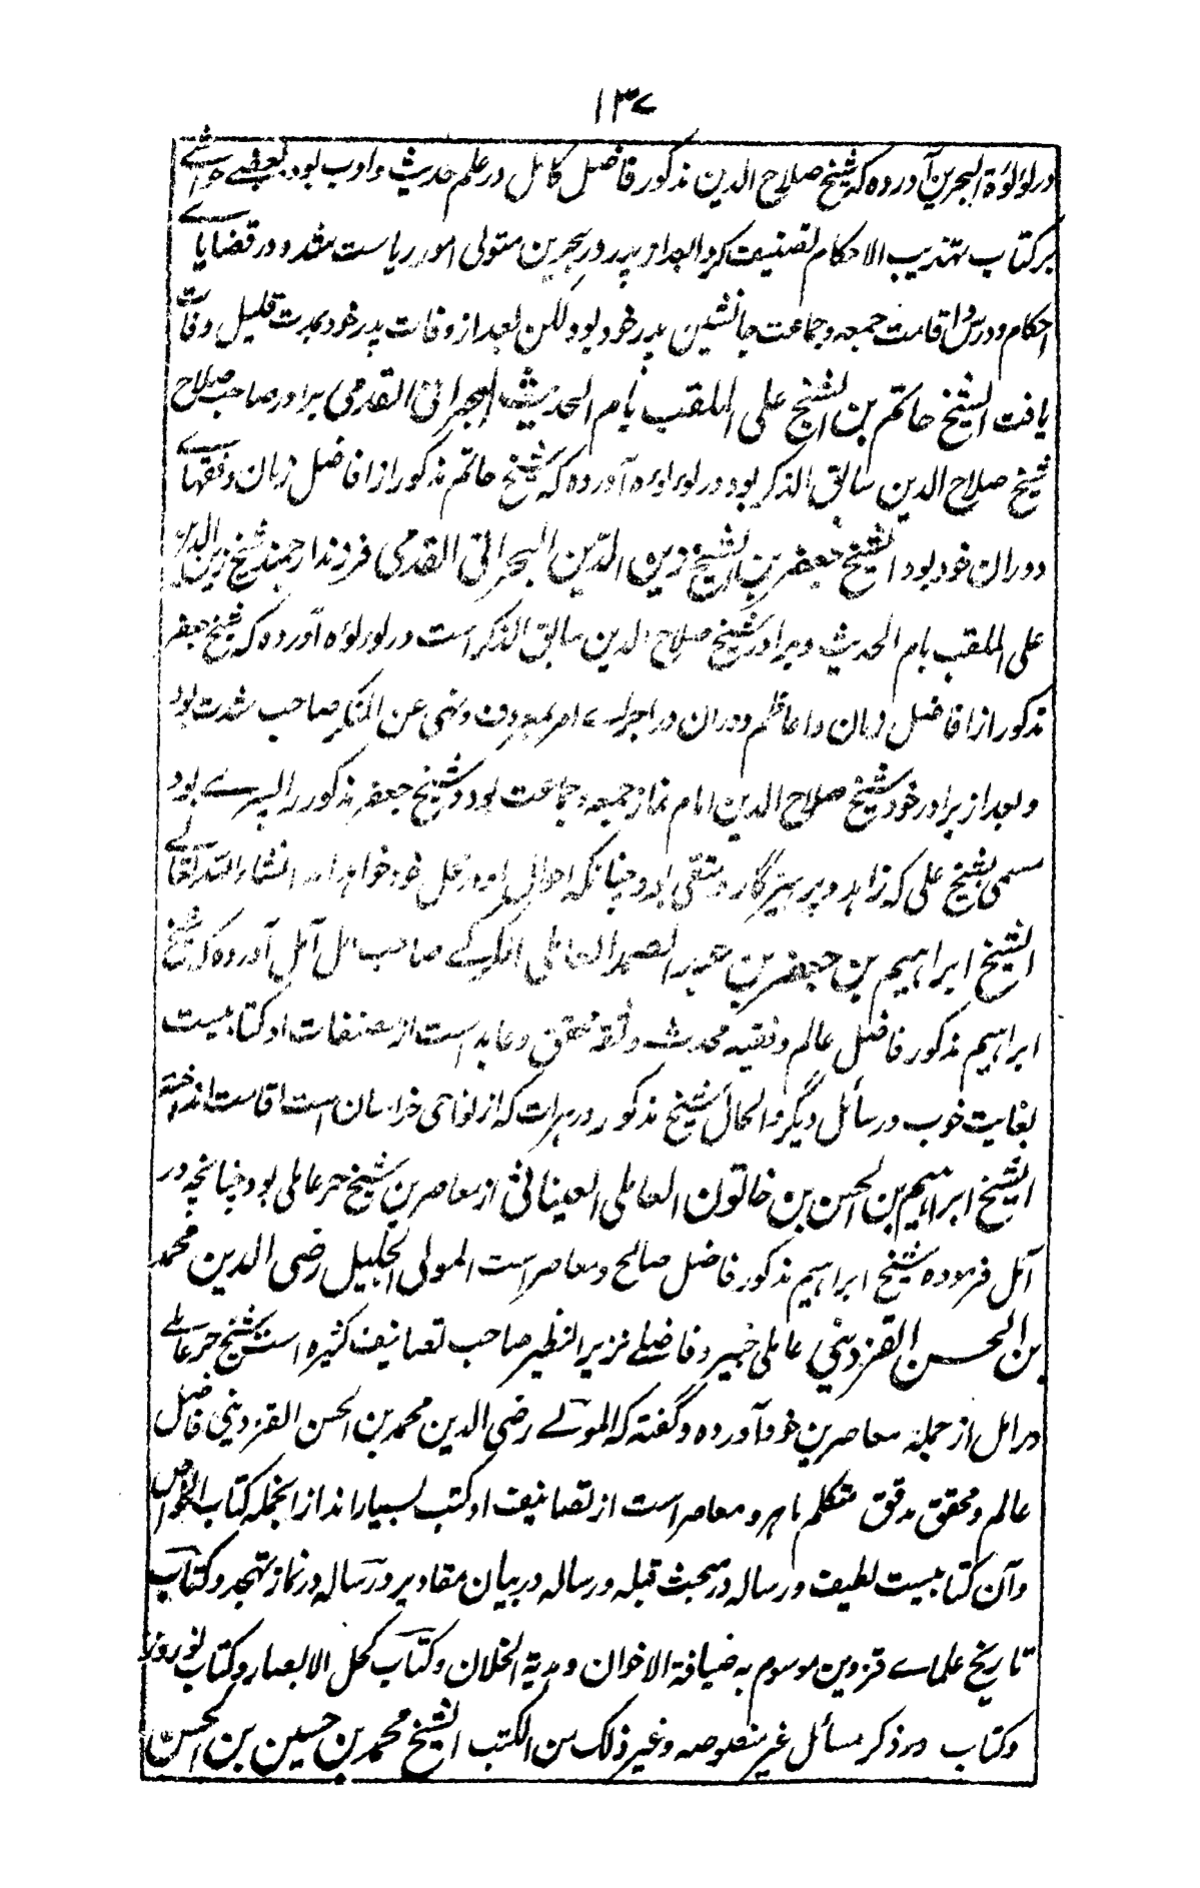 ۱۳۷
در لؤلؤة البحرین آورده که شیخ صلاح الدین مذکور فاضل کامل در علم حدیث و ادب بود بعضے حواشے
بر کتاب تهذیب الاحکام تصنیف کرد و بعد از پدر در بحرین متولی امور ریاست شد و در قضایاے
احکام و درس و اقامت جمعه و جماعت جانشین پدر خود بود لکن بعد از وفات پدر خود بمدت قلیل وفات
یافت الشیخ حاتم بن الشیخ علی الملقب بأم الحدیث البحرانی القدمی برادر صاحب صلاح
شیخ صلاح الدین سابق الذکر بود در لؤلؤه آورده که شیخ حاتم مذکور از افاضل زمان و فقهاے
دوران خود بود الشیخ جعفر بن الشیخ زین الدین البحرانی القدمی فرزند ارجمند شیخ زین الدین
علی الملقب بام الحدیث و برادر شیخ صلاح الدین سابق الذکر است در لؤلؤه آورده که شیخ جعفر
مذکور از افاضل زمان و اعاظم دوران در اجراے امر بمعروف و نهی عن المنکر صاحب شدت بود
و بعد از برادر خود شیخ صلاح الدین امام نماز جمعه و جماعت بود و شیخ جعفر مذکور را پسرے بود
مسمی بشیخ علی که زاهد و پرهیزگار و متقی بود چنانکه احوال او در محل خود خواهد آمد انشاء الله تعالے
الشیخ ابراهیم بن جعفر بن عبد الصمد العاملی الکرکے صاحب امل آمل آورده که شیخ
ابراهیم مذکور فاضل عالم و فقیه محدث و ثقه محقق و عابد است از مصنفات او کتابیست
بغایت خوب و رسائل دیگر و الحال شیخ مذکور در هرات که از نواحی خراسان است اقامت انداخته
الشیخ ابراهیم بن الحسن بن خاتون العاملی العینائی از معاصرین شیخ حر عاملی بود چنانچه در
امل فرموده شیخ ابراهیم مذکور فاضل صالح و معاصر است المولی الجلیل رضی الدین محمد
بن الحسن القزوینی عاملی خبیر و فاضلے عزیز النظیر صاحب تصانیف کثیره است شیخ حر عاملے
در امل از جمله معاصرین خود آورده و گفته که المولے رضی الدین محمد بن الحسن القزوینی فاضل
عالم و محقق مدقق متکلم ماهر و معاصر است از تصانیف او کتب بسیار اند از انجمله کتاب الخواص
و آن کتابیست لطیف و رساله در مبحث قبله و رساله در بیان مقادیر و رساله در نماز تهجد و کتاب
تاریخ علماے قزوین موسوم به ضیافة الاخوان و هدیة الخلان و کتاب کحل الابصار و کتاب نوروز
و کتاب در ذکر مسائل غیر منصوصه و غیر ذلک من الکتب الشیخ محمد بن حسین بن الحسن